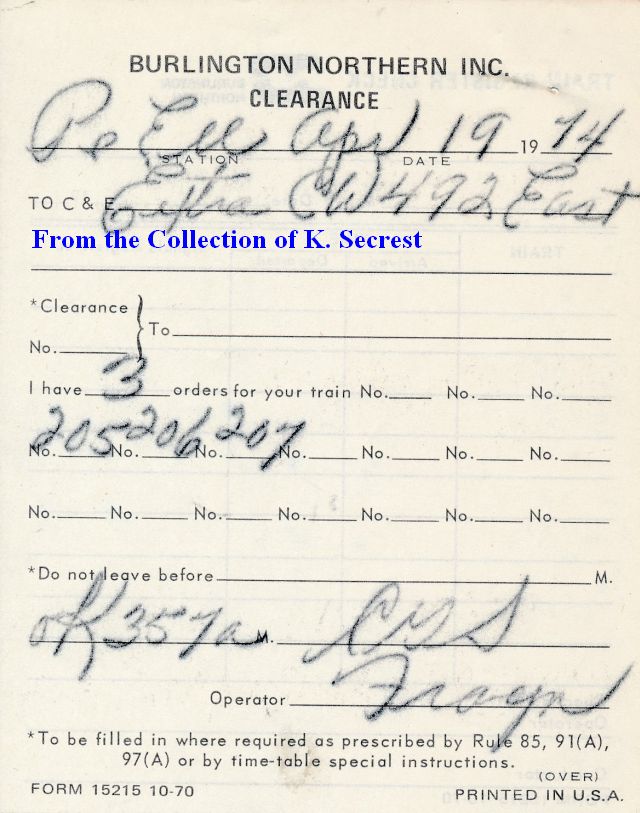 BURLINGTON NORTHERN INC.
CLEARANCE
Pe Ell Apr 19 19 74
STATION DATE
TO C & E Extra CW 492 East
From the Collection of K. Secrest
*Clearance
No. To
I have 3 orders for your train No. No. No.
205 206 207
No. No. No. No. No. No. No.
No. No. No. No. No. No. No.
*Do not leave before M.
OK 357a M. CGS
Operator
*To be filled in where required as prescribed by Rule 85, 91(A),
97(A) or by time-table special instructions.
(OVER)
FORM 15215 10-70 PRINTED IN U.S.A.